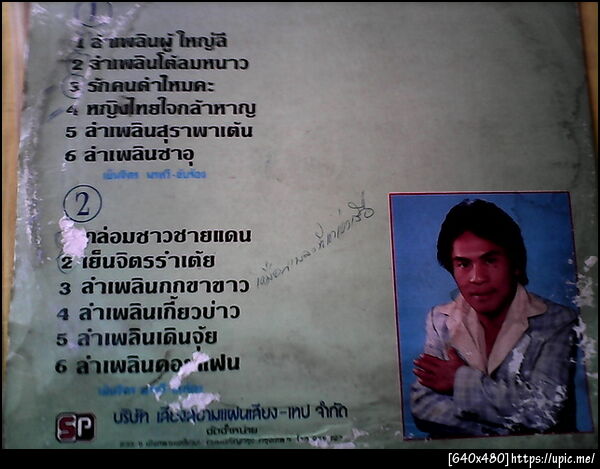 1
1 ลำเพลินผู้ใหญ่ลี
2 ลำเพลินโต้ลมหนาว
3 รักคนดำไหมคะ
4 หญิงไทยใจกล้าหาญ
5 ลำเพลินสุราพาเต้น
6 ลำเพลินชาอุ
เย็นจิตร
2
กล่อมชาวชายแดน
2 เย็นจิตรรำเต้ย
3 ลำเพลินกกขาขาว
4 ลำเพลินเกี้ยวบ่าว
5 ลำเพลินเดินจุ้ย
6 ลำเพลินคอยแฟน
เย็นจิตร
SP
บริษัท เสียงสยามแผ่นเสียง-เทป จำกัด
จัดจำหน่าย
[640x480]https://upic.me/